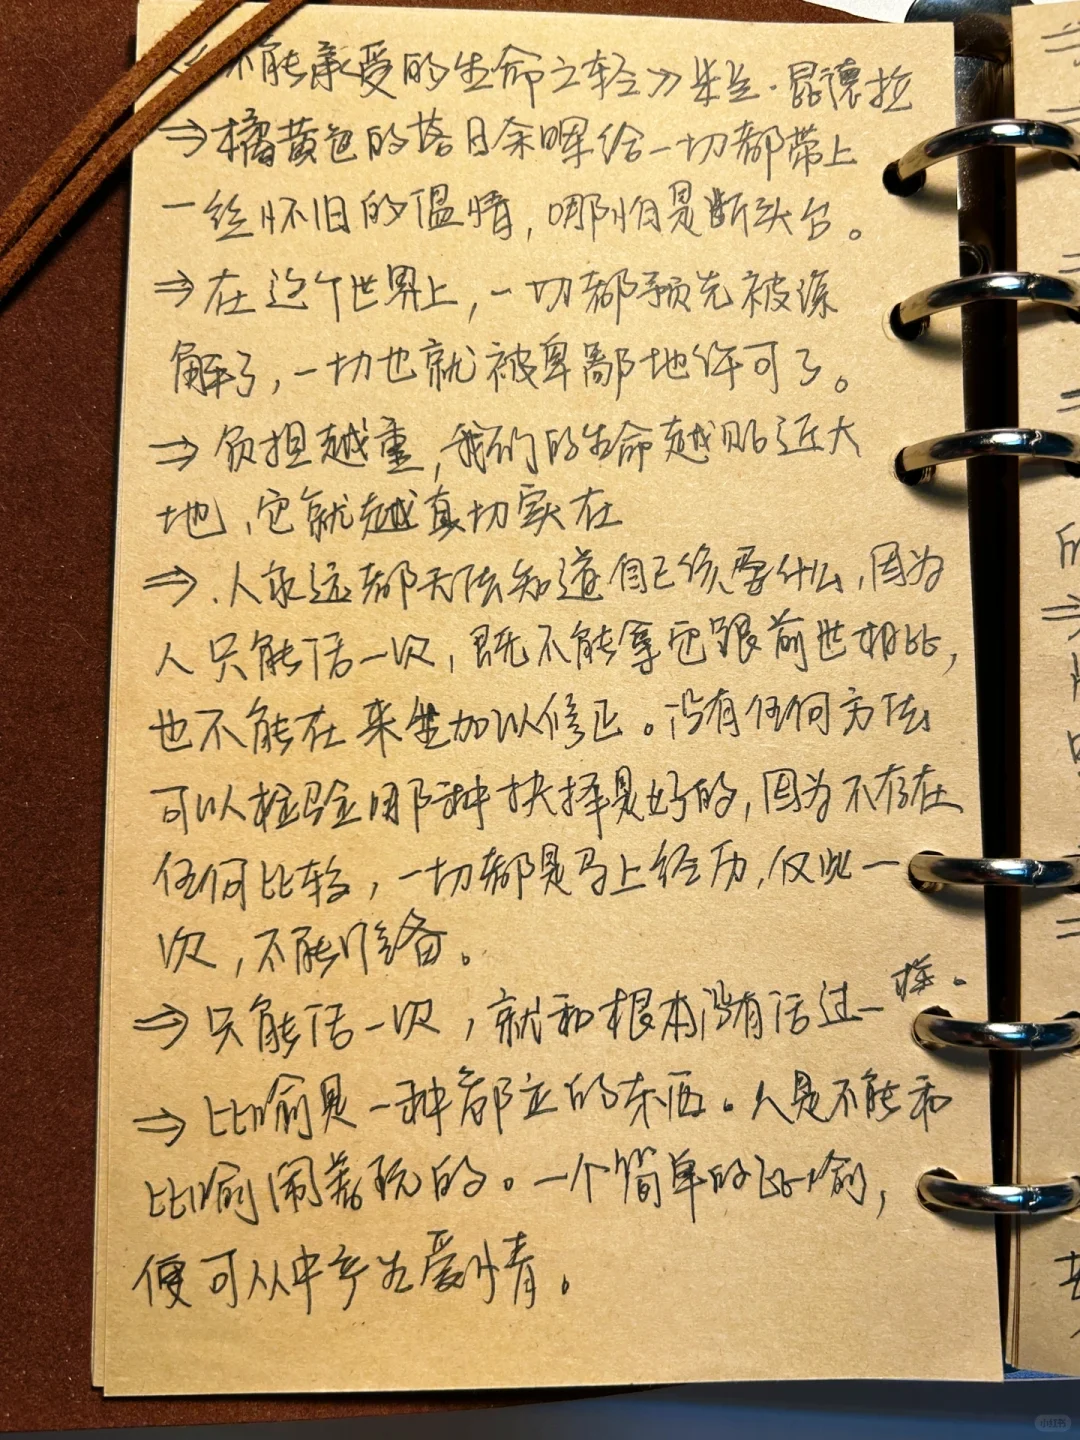 《不能承受的生命之轻》米兰·昆德拉
⇒橘黄色的落日余晖给一切都带上
一丝怀旧的温情，哪怕是断头台。
⇒在这个世界上，一切都预先被谅
解了，一切也就被卑鄙地许可了。
⇒负担越重，我们的生命越贴近大
地，它就越真切实在
⇒.人永远都无法知道自己该要什么，因为
人只能活一次，既不能拿它跟前世相比，
也不能在来生加以修正。没有任何方法
可以检验哪种抉择是好的，因为不存在
任何比较，一切都是马上经历，仅此一
次，不能准备。
⇒只能活一次，就和根本没有活过一样。
⇒比喻是一种都立的东西。人是不能和
比喻闹着玩的。一个简单的比喻，
便可从中产生爱情。
小红书